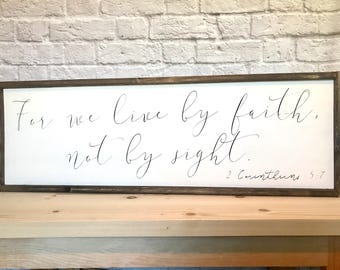 For we live by faith,
not by sight.
2 Corinthians 5:7